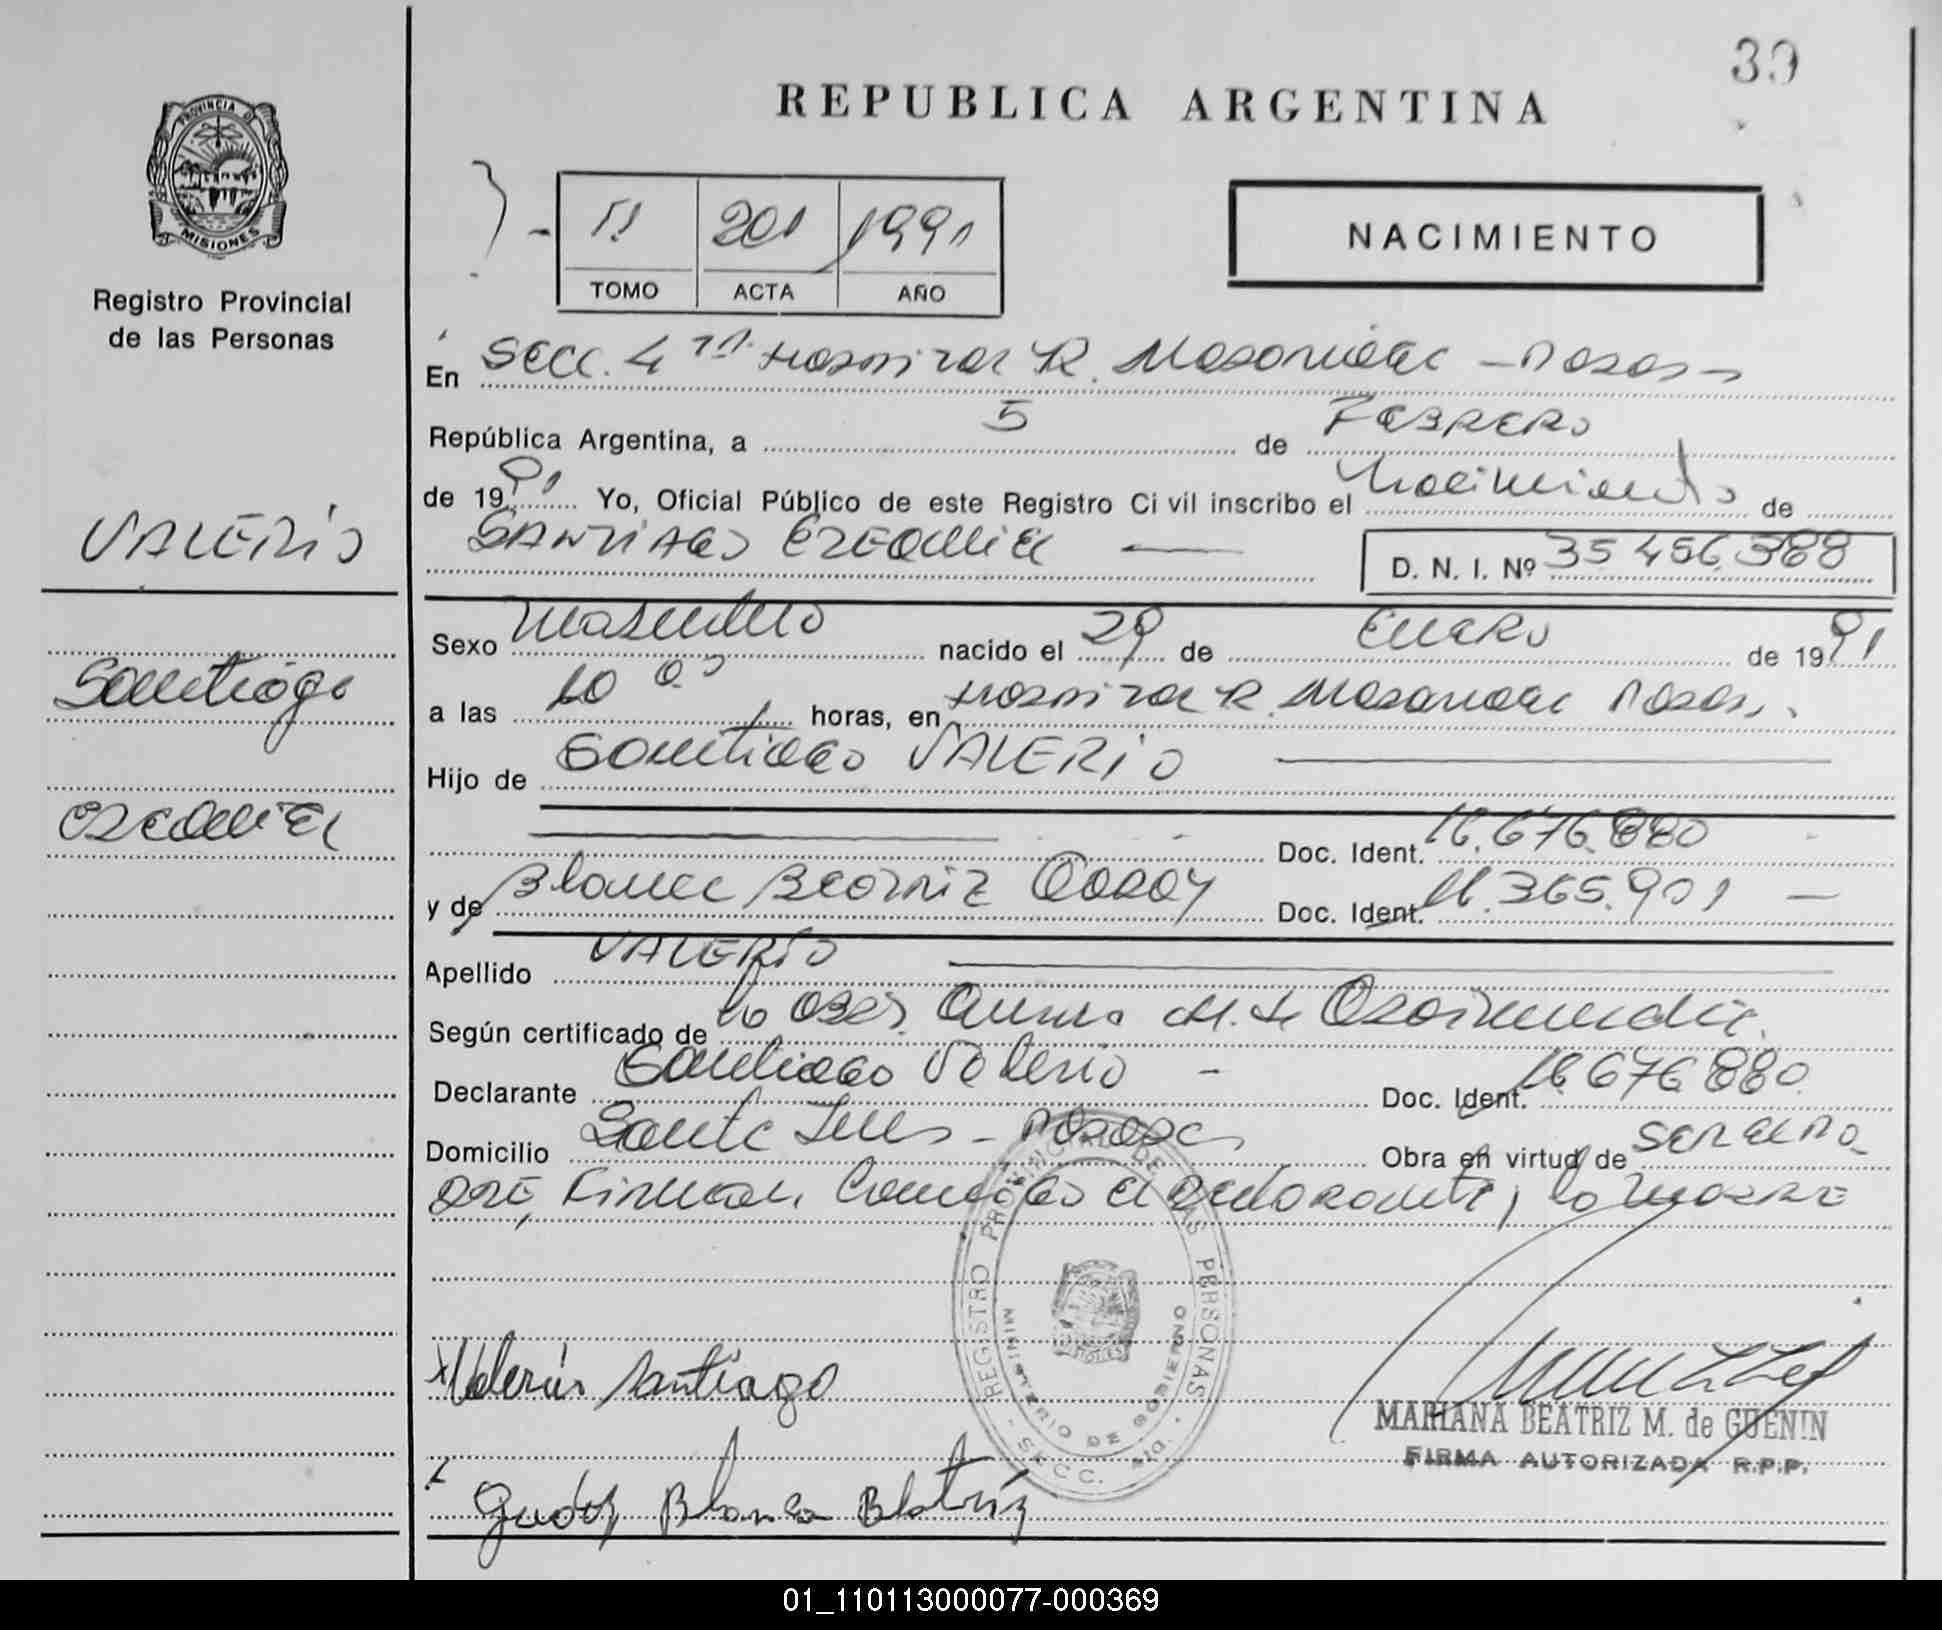 39
REPUBLICA ARGENTINA
PROVINCIA DE
MISIONES
Registro Provincial
de las Personas
II 201 1991
TOMO ACTA AÑO
NACIMIENTO
En Secc. 4ta Hospital R. Madariaga - Posadas
República Argentina, a 5 de FEBRERO
de 1991 Yo, Oficial Público de este Registro Civil inscribo el Nacimiento de
SANTIAGO EZEQUIEL
D. N. I. Nº 35.456.388
VALERIO
Santiago
EZEQUIEL
Sexo Masculino nacido el 29 de Enero de 1991
a las 10 horas, en Hospital R. Madariaga Posadas
Hijo de Santiago VALERIO
Doc. Ident. 16.676.880
y de Blanca Beatriz Godoy Doc. Ident. 16.365.901
Apellido VALERIO
Según certificado de la Obst.
Declarante Santiago Valerio - Doc. Ident. 16.676.880
Domicilio Santa Inés - Posadas Obra en virtud de
Firman Conmigo el declarante, la madre
REGISTRO PROVINCIAL DE LAS PERSONAS
MINISTERIO DE GOBIERNO
SECC. 4ta
Valerio Santiago
MARIANA BEATRIZ M. de GUENIN
FIRMA AUTORIZADA R.P.P.
Godoy Blanca Beatriz
01_110113000077-000369